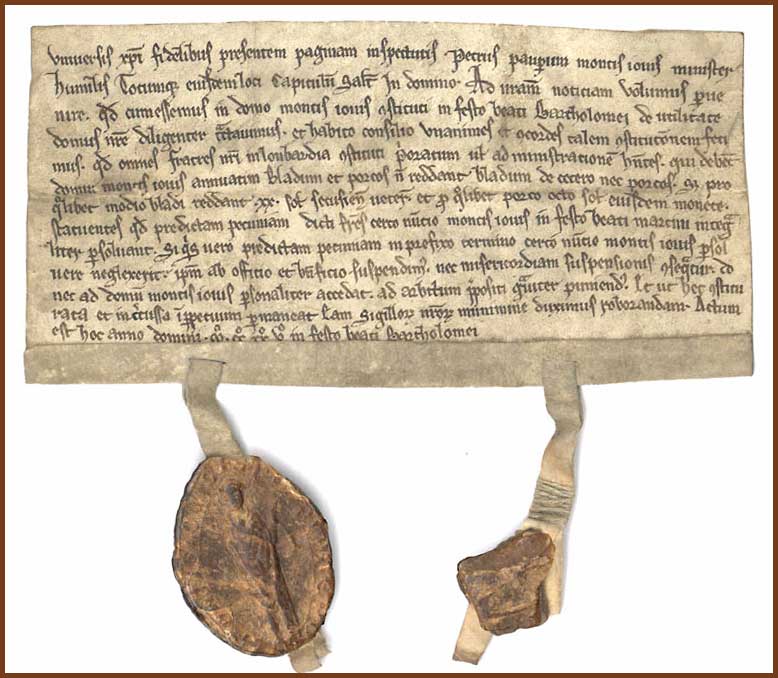 Universis xpi fidelibus presentem paginam inspecturis Petrus pauperum montis iovis minister
humilis Totumque eiusdem loci Capitulum Salt in domino. Ad vram noticiam volumus pue
nire. qd cum essemus in domo montis iovis ostituti in festo beati Bartholomei de utilitate
domus nre diligenter tractavimus. et habito consilio unanimes et ocordes talem ostitucionem feci
mus. qd omnes fratres nri in lonbardia ostituti prioratum ul administracione hntes. qui debent
domui montis iovis annuatim bladum et porcos n reddant bladum de cetero nec porcos. Sz pro
qlibet modio bladi reddant .xx. sol secusien veter. et p qlibet porco octo sol eiusdem monete.
statuentes qd predictam pecuniam dicti fres certo nuncio montis iovis in festo beati martini integra
liter psolvant. Si qs vero predictam pecuniam in prefixo termino certo nuncio montis iovis psol
vere neglexerit. ipm ab officio et bnficio suspendim. nec misericordiam suspensionis oseqtur. do
nec ad domu montis iovis psonaliter accedat. ad arbitrium ppositi graviter puniend. Et ut hec ostituti
rata et inconcussa in ppetuum pmaneat sigillor nror munimine duximus roborandam. Actum
est hoc anno domini. in festo beati Bartholomei